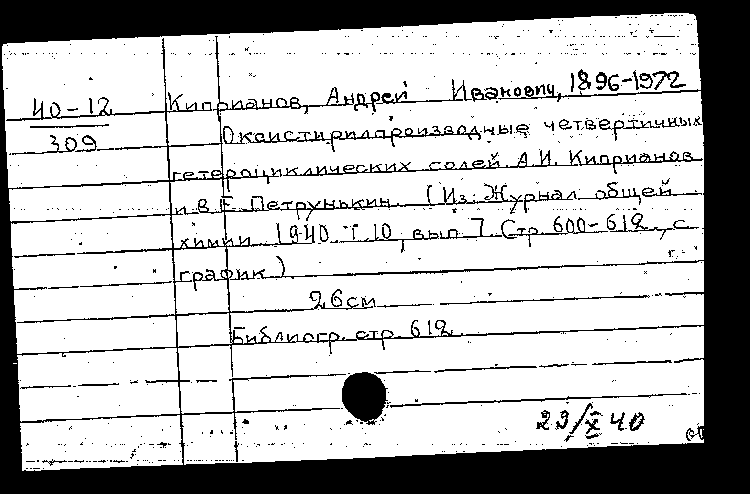 40-12
309
Киприанов, Андрей Иванович, 1896-1972
Оксистирилпроизводные четвертичных
гетероциклических солей А.И. Киприанов
и В.Е. Петрунькин. (Из: Журнал общей
химии 1940 Т 10, вып 7 Стр 600-612, с
график)
26см
Библиогр. стр. 612
29/X 40